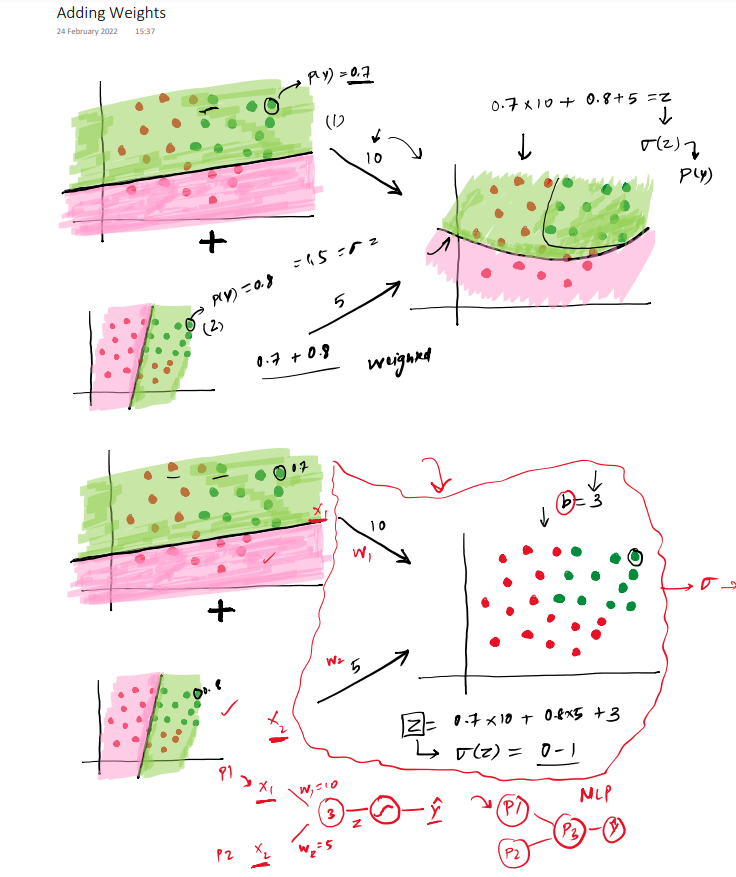 Adding Weights
24 February 2022 15:37
P(Y) = 0.7
(1)
10
0.7 x 10 + 0.8 + 5 = z
σ(z)
P(Y)
+
P(Y) = 0.8
(2)
5
0.7 + 0.8
weighted
0.7
x1
10
w1
b = 3
σ
+
0.8
w2 5
x2
z = 0.7 x 10 + 0.8x5 + 3
σ(z) = 0 - 1
P1 x1 w1 = 10
3 z Ŷ
P2 x2 w2 = 5
MLP
P1
P3
P2